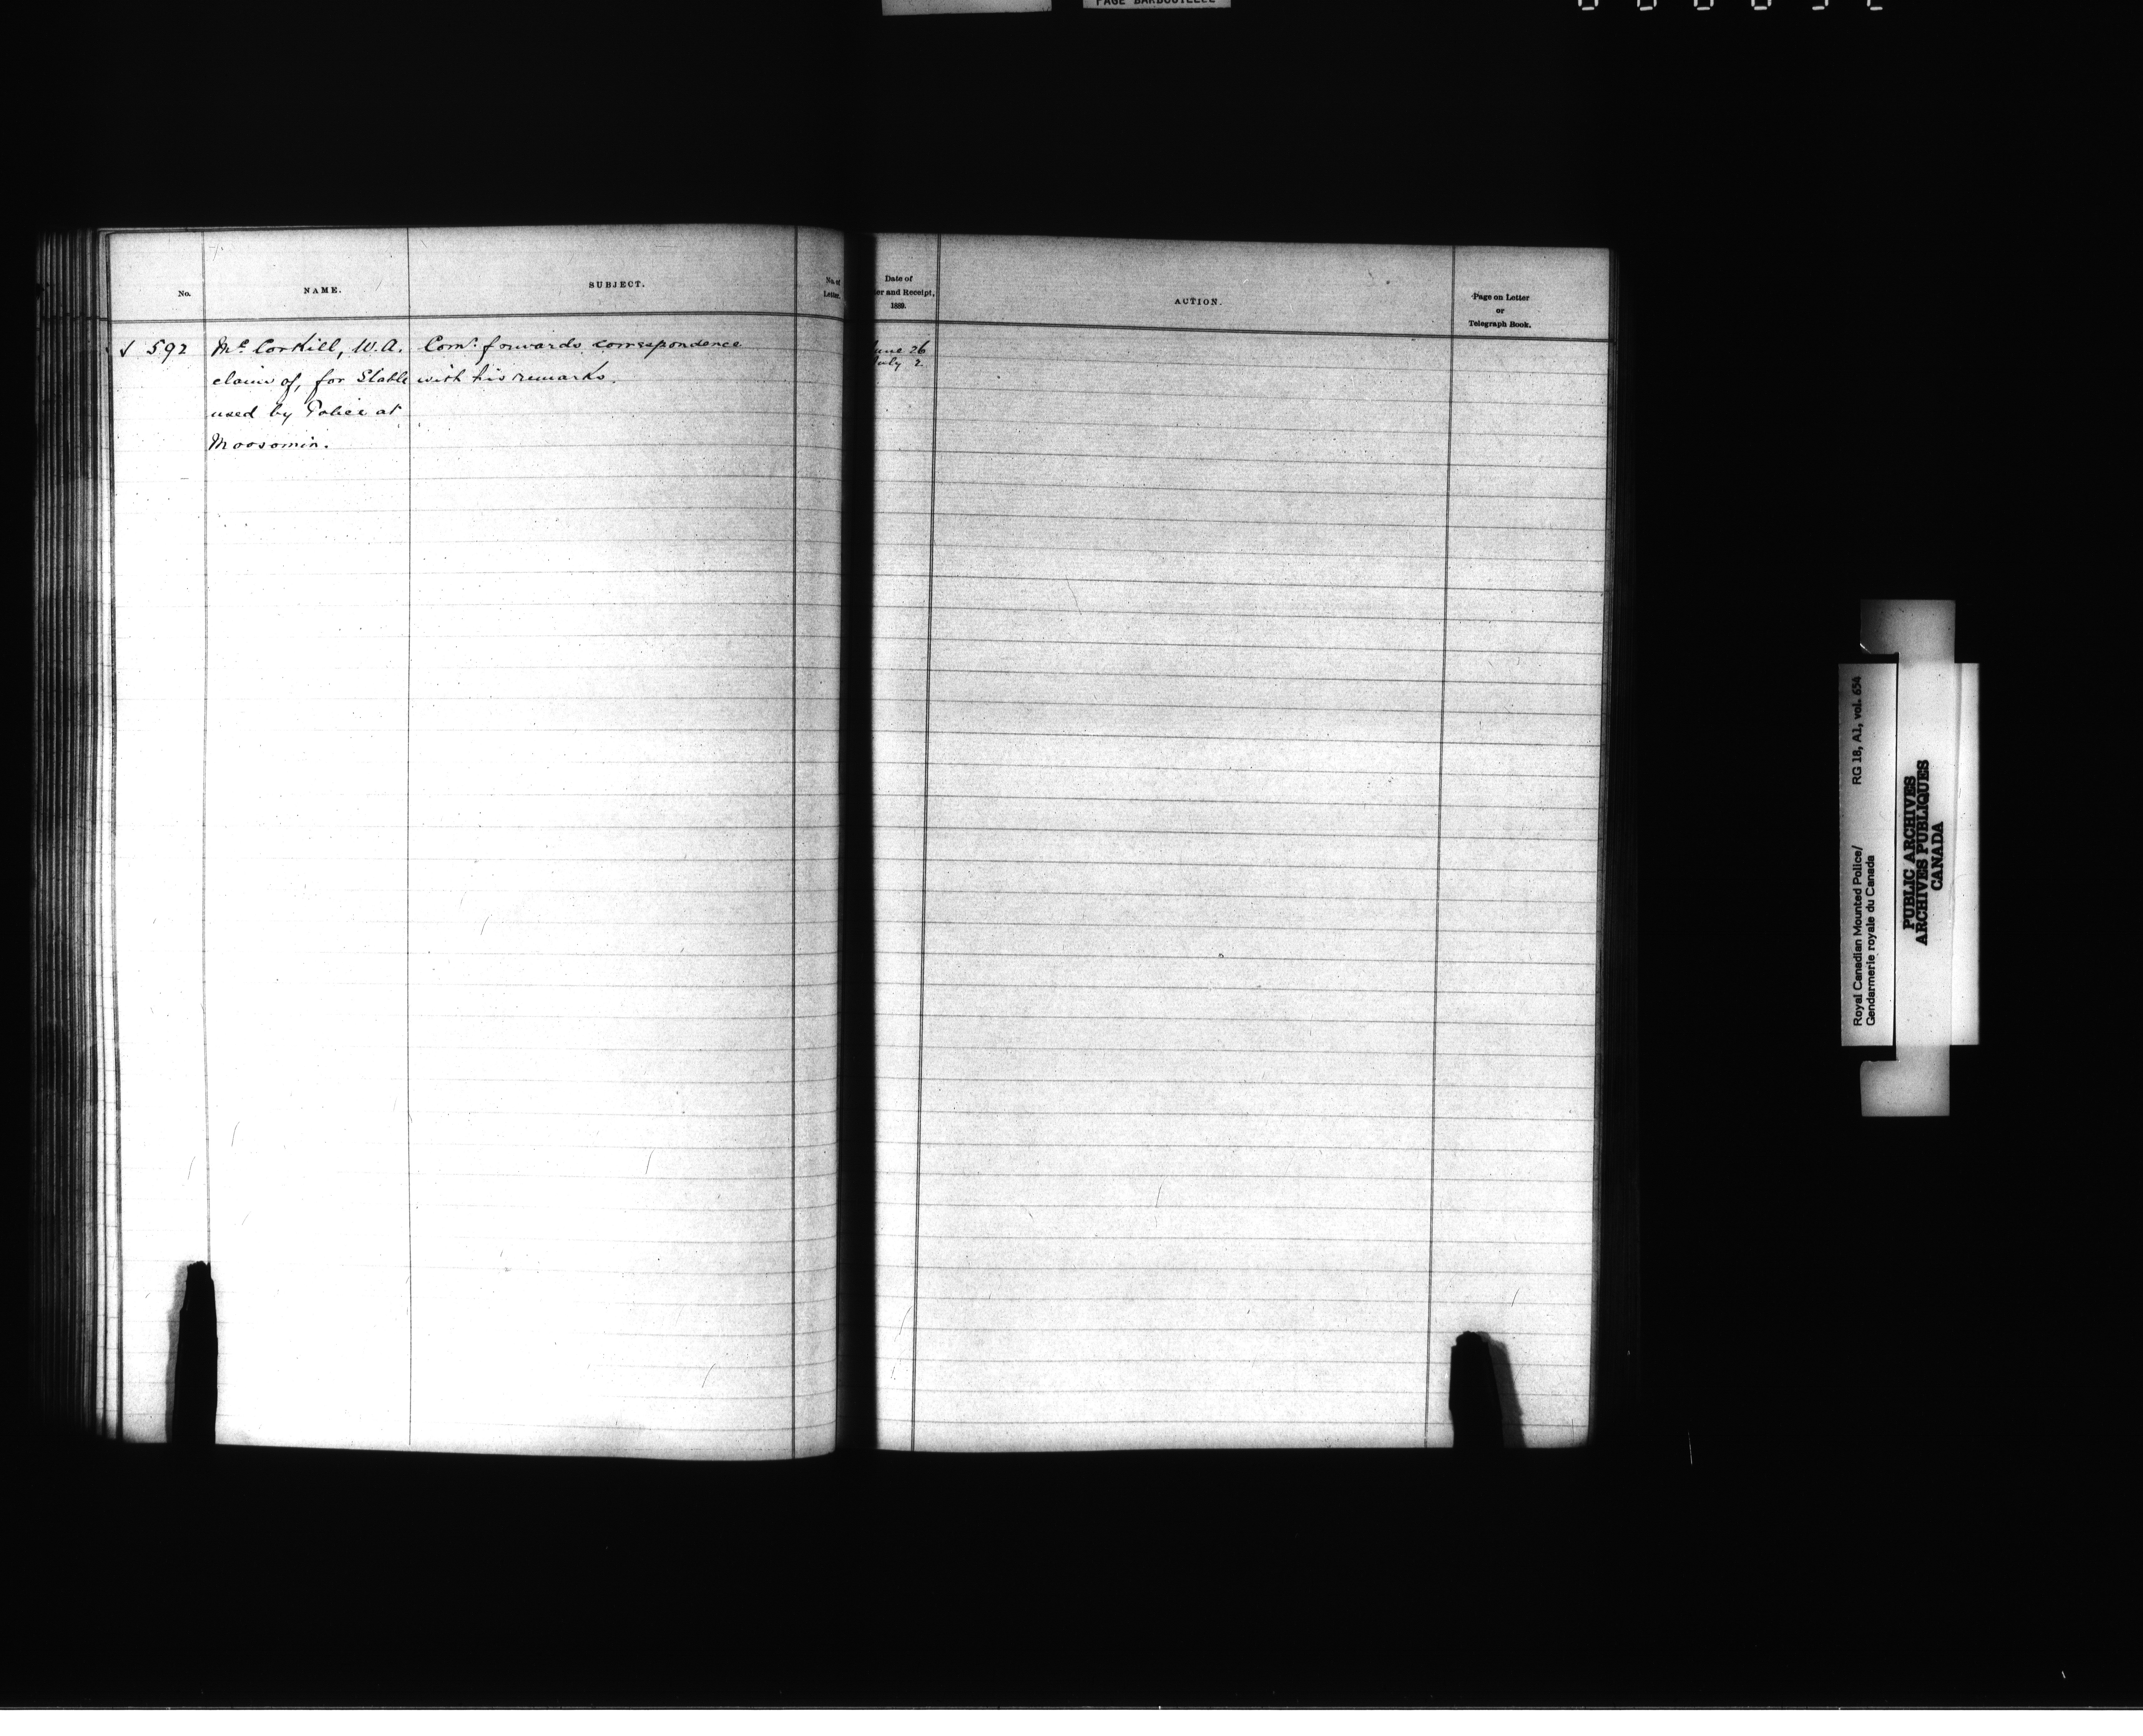 PAGE BARBOUILLEE
No.
NAME.
SUBJECT.
No. of
Letter.
Date of
er and Receipt,
1889.
ACTION.
Page on Letter
or
Telegraph Book.
√ 592 Mc Corkill, W.A. Comr. forwards correspondence
claim of, for Stable with his remarks.
used by Police at
Moosomin.
une 26
July 2
Royal Canadian Mounted Police/ RG 18, A1, vol. 654
Gendarmerie royale du Canada
PUBLIC ARCHIVES
ARCHIVES PUBLIQUES
CANADA